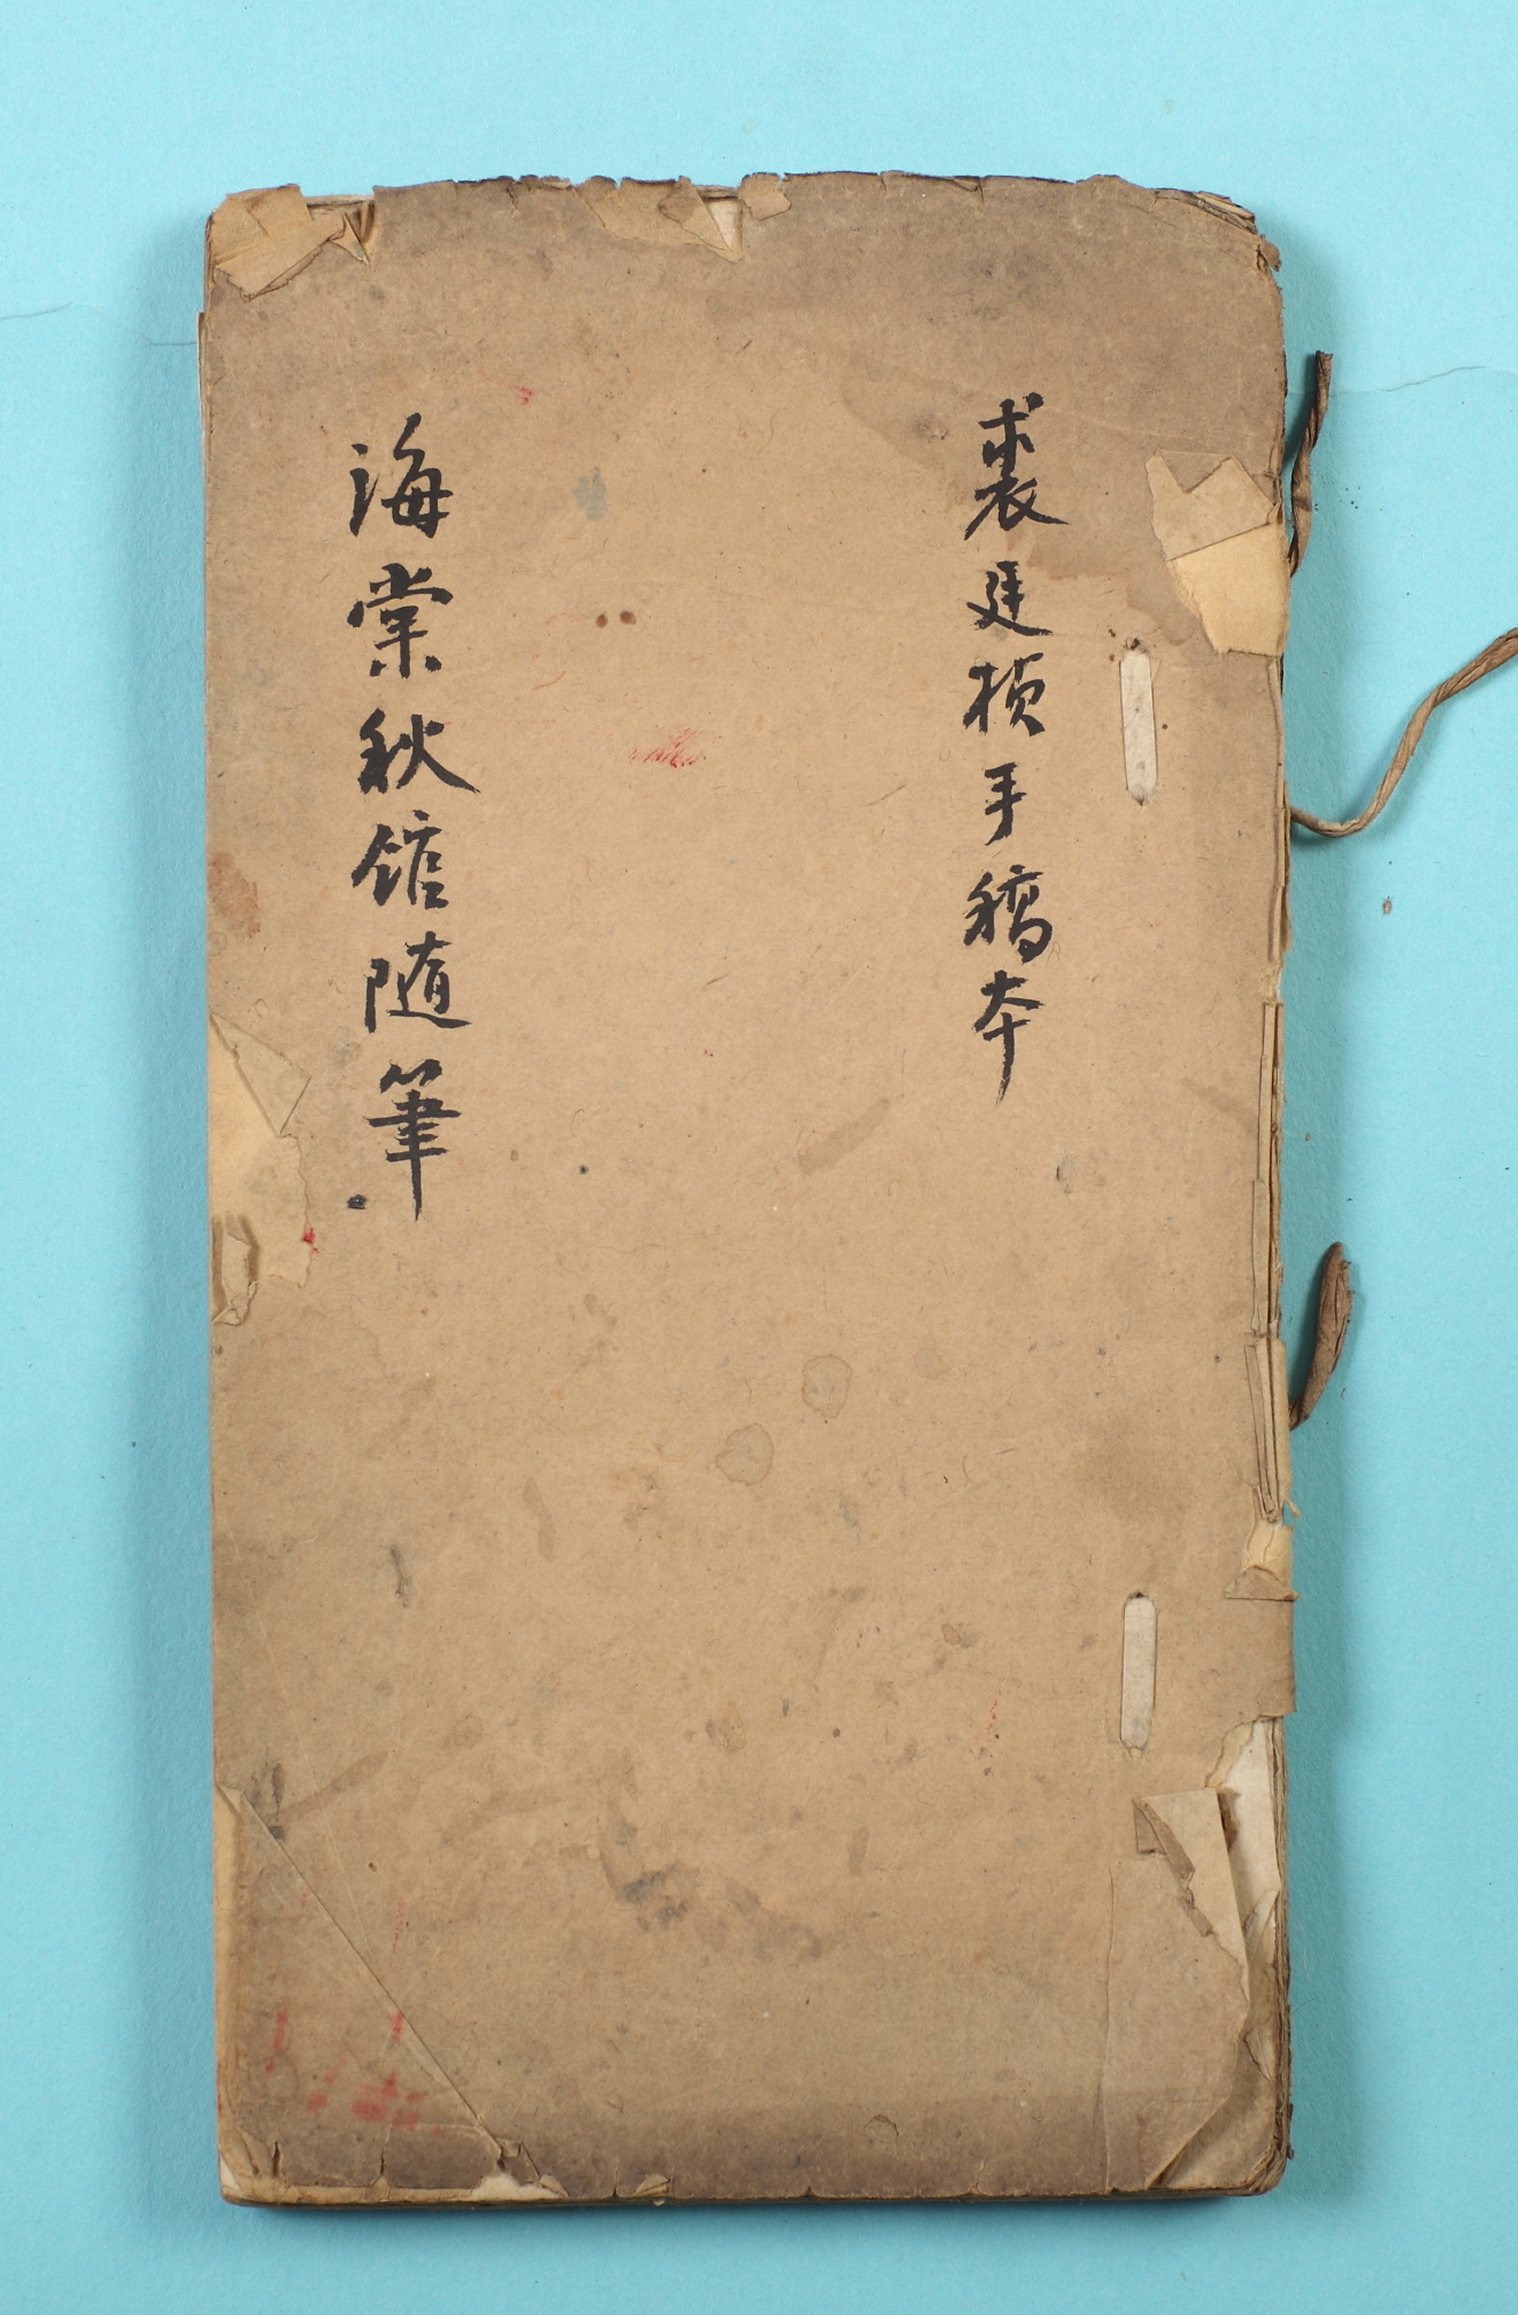 裘廷楨手稿本
海棠秋館随筆